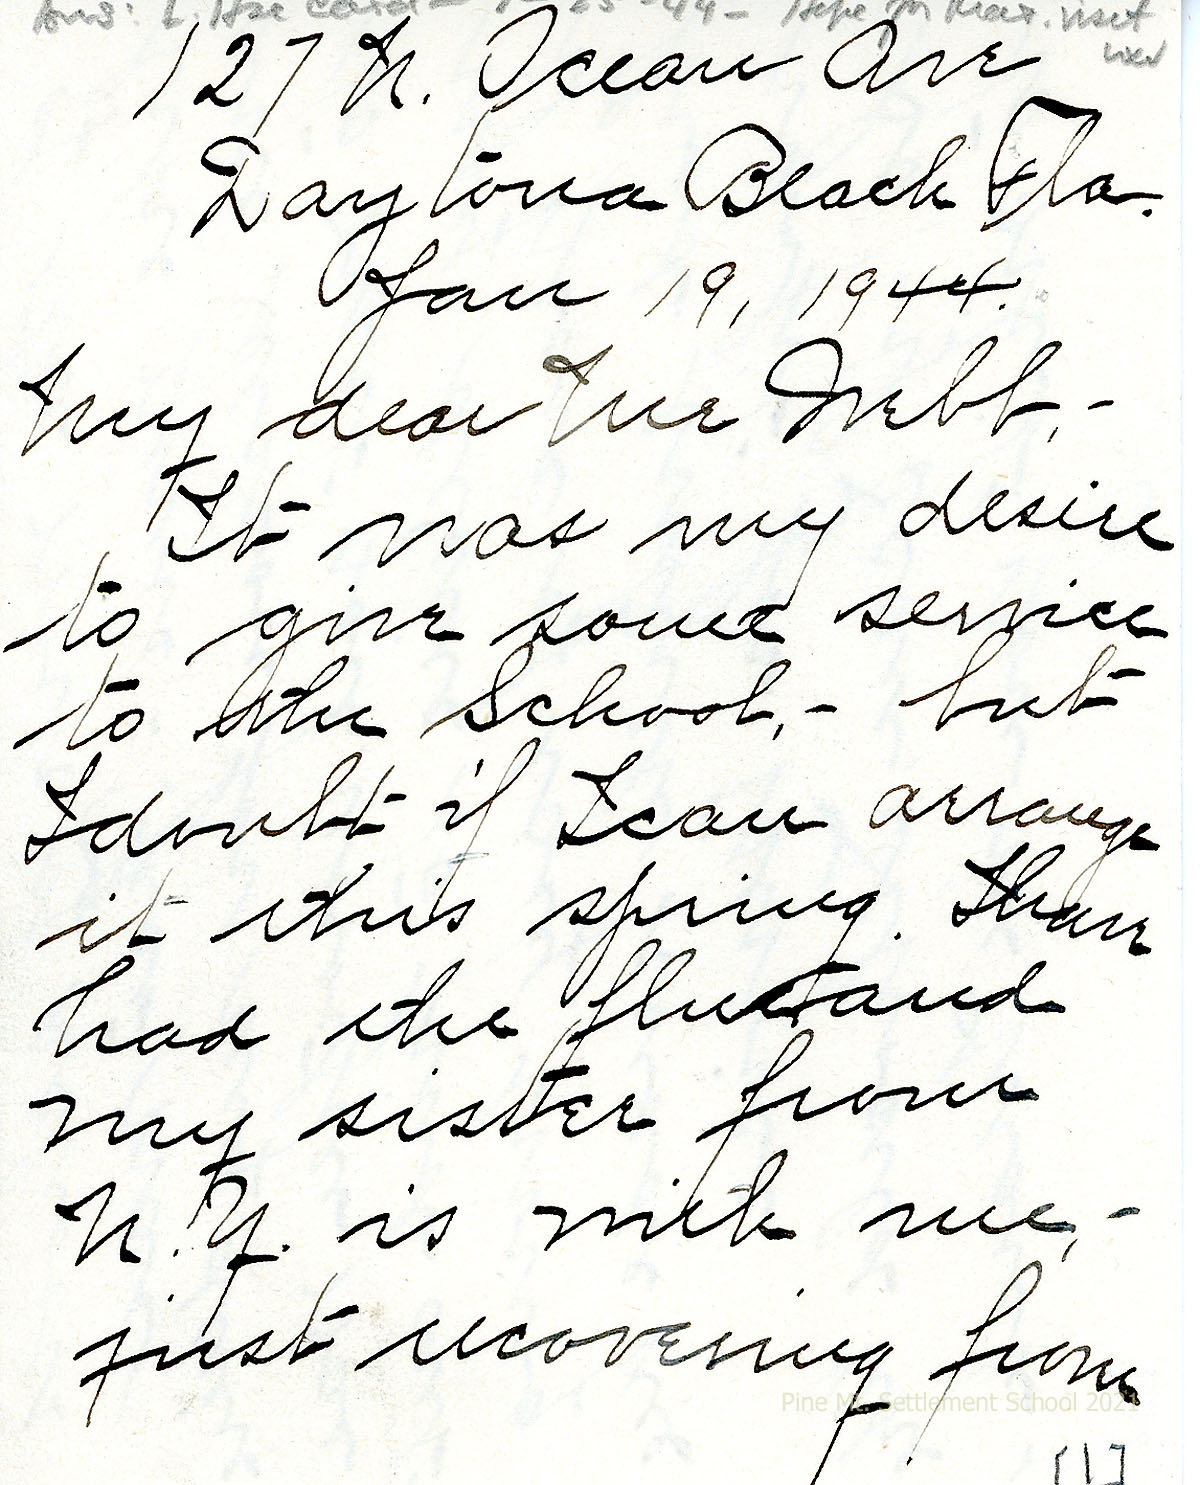 Ans: L. Hse card - 1-25-44 - Hope for Mar. visit
127 N. Ocean Ave
Daytona Beach Fla.
Jan 19, 1944.
My dear Mr Webb,-
It was my desire
to give some service
to the School,- but
I doubt if I can arrange
it this spring. I have
had the flu and
my sister from
N.Y. is with me,-
just recovering from
Pine Mt. Settlement School 2021
[1]